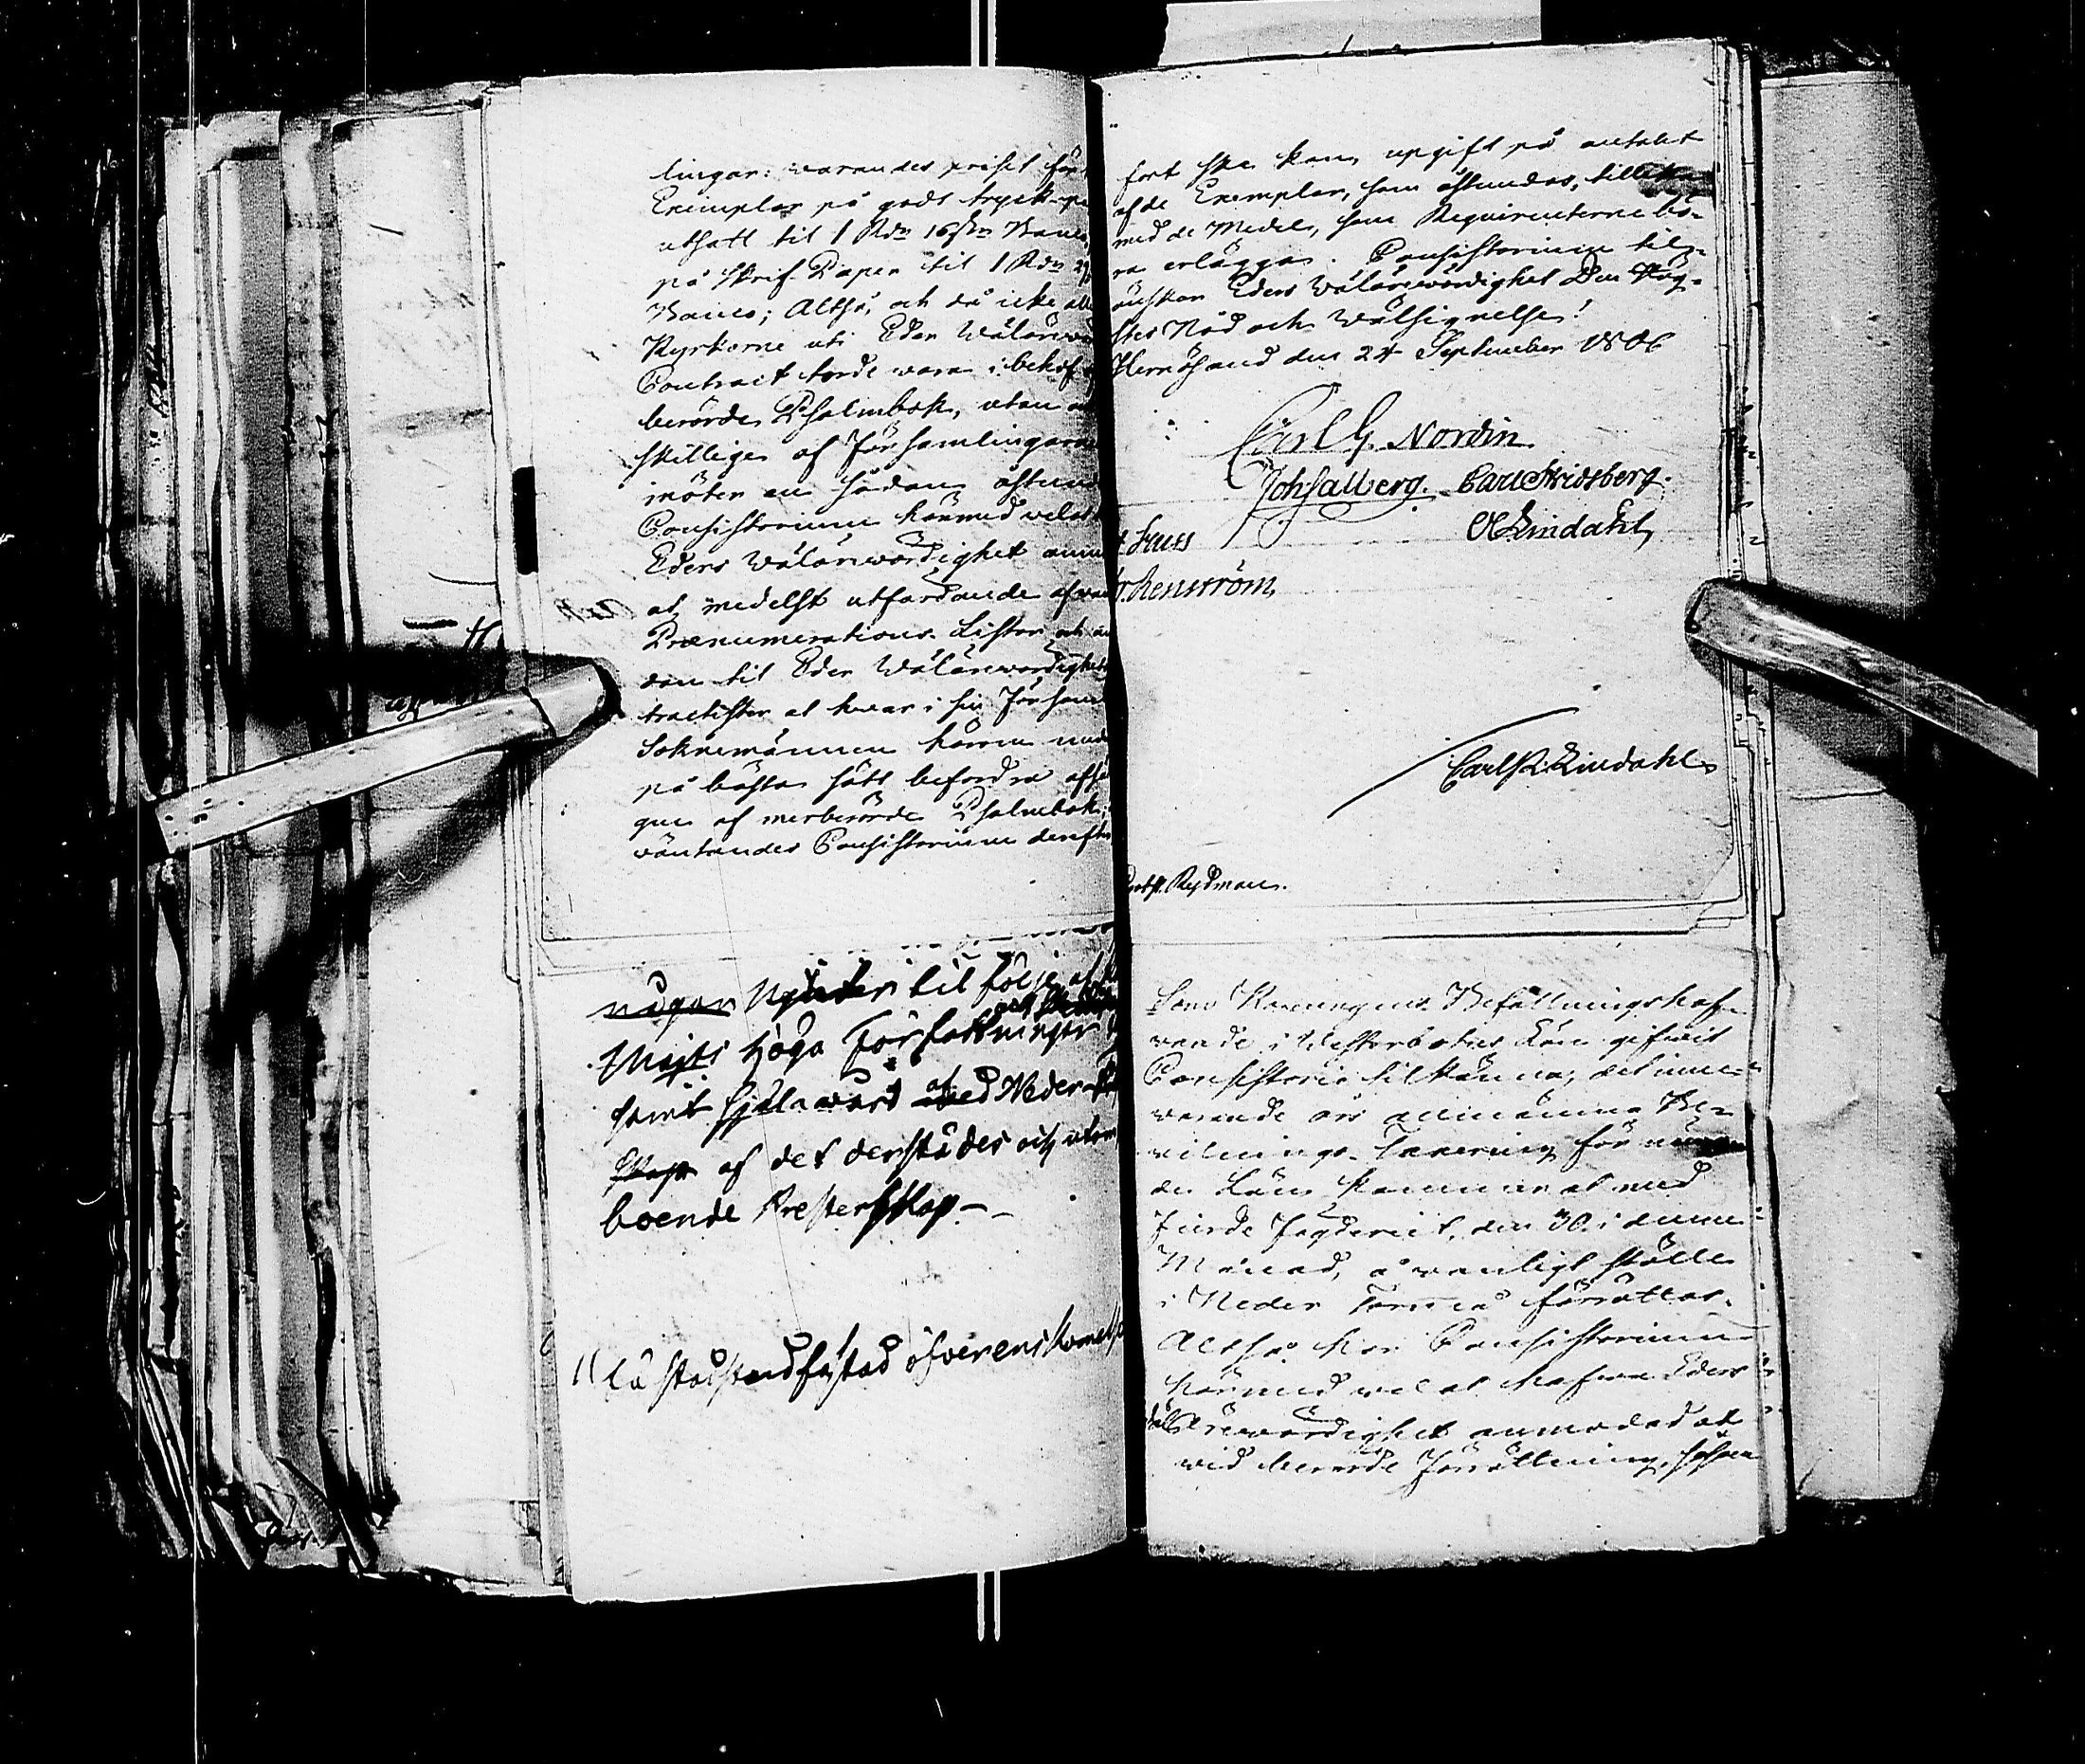 lingar: warandes priset för
Exemplar på godt tryck-pa
utsatt til 1 Rdr 16 sk. Banco,
på skrif Paper til 1 Rdr
Banco; Altså, och då icke alla
Kyrkorne uti Eder Wälärewör
Contract torde wara i behof
berörde Psalmbok, utan
skillige af Församlingarne
möter en sådan åstund
Consistorium härmed welat
Eders Wälärewördighet anm
at medelst utfärdande af
Prænumerations Listor och
dan til Eder Wälärewördighets
tractister at hwar i sin Försam
Soknemännen härom und
på bästa sätt befordra afsä
gen af merberörde Psalmbok;
wäntandes Consistorium derefter
fort ske kan, upgift på antalet
af de Exemplar, som åstundas, tillika
med de Medel, som Requirenterne bö-
ra erlägga. Consistorium til-
önskar Eders Wälärewördighet Den Hög-
stes Nåd och Wälsignelse!
Hernösand den 24 September 1806
Carl G. Nordin
Joh Sallberg. Carl Stridsberg.
Huss
O Lindahl
Renström
Carl R. Lindahl
Rydman.
någon til följe af
Majts höga Författningar
samt sjelfwård af Neder
skap af det derstädes och utom
boende Presterskap
öfverenskommelse
Som Konungens Befallningshaf-
wande i Westerbotns Län gifwit
Consistorio tilkänna, det inne-
warande års allmänna Be-
willnings-Taxering för
de Län kommer at med
fierde Fögderiet, den 30 i denne
Månad, å wanligt ställe
i Neder Torneå förrättas.
Altså har Consistorium
härmed welat hafwa Eders
Wälärewördighet anmodad at
wid berörde Förrättning,